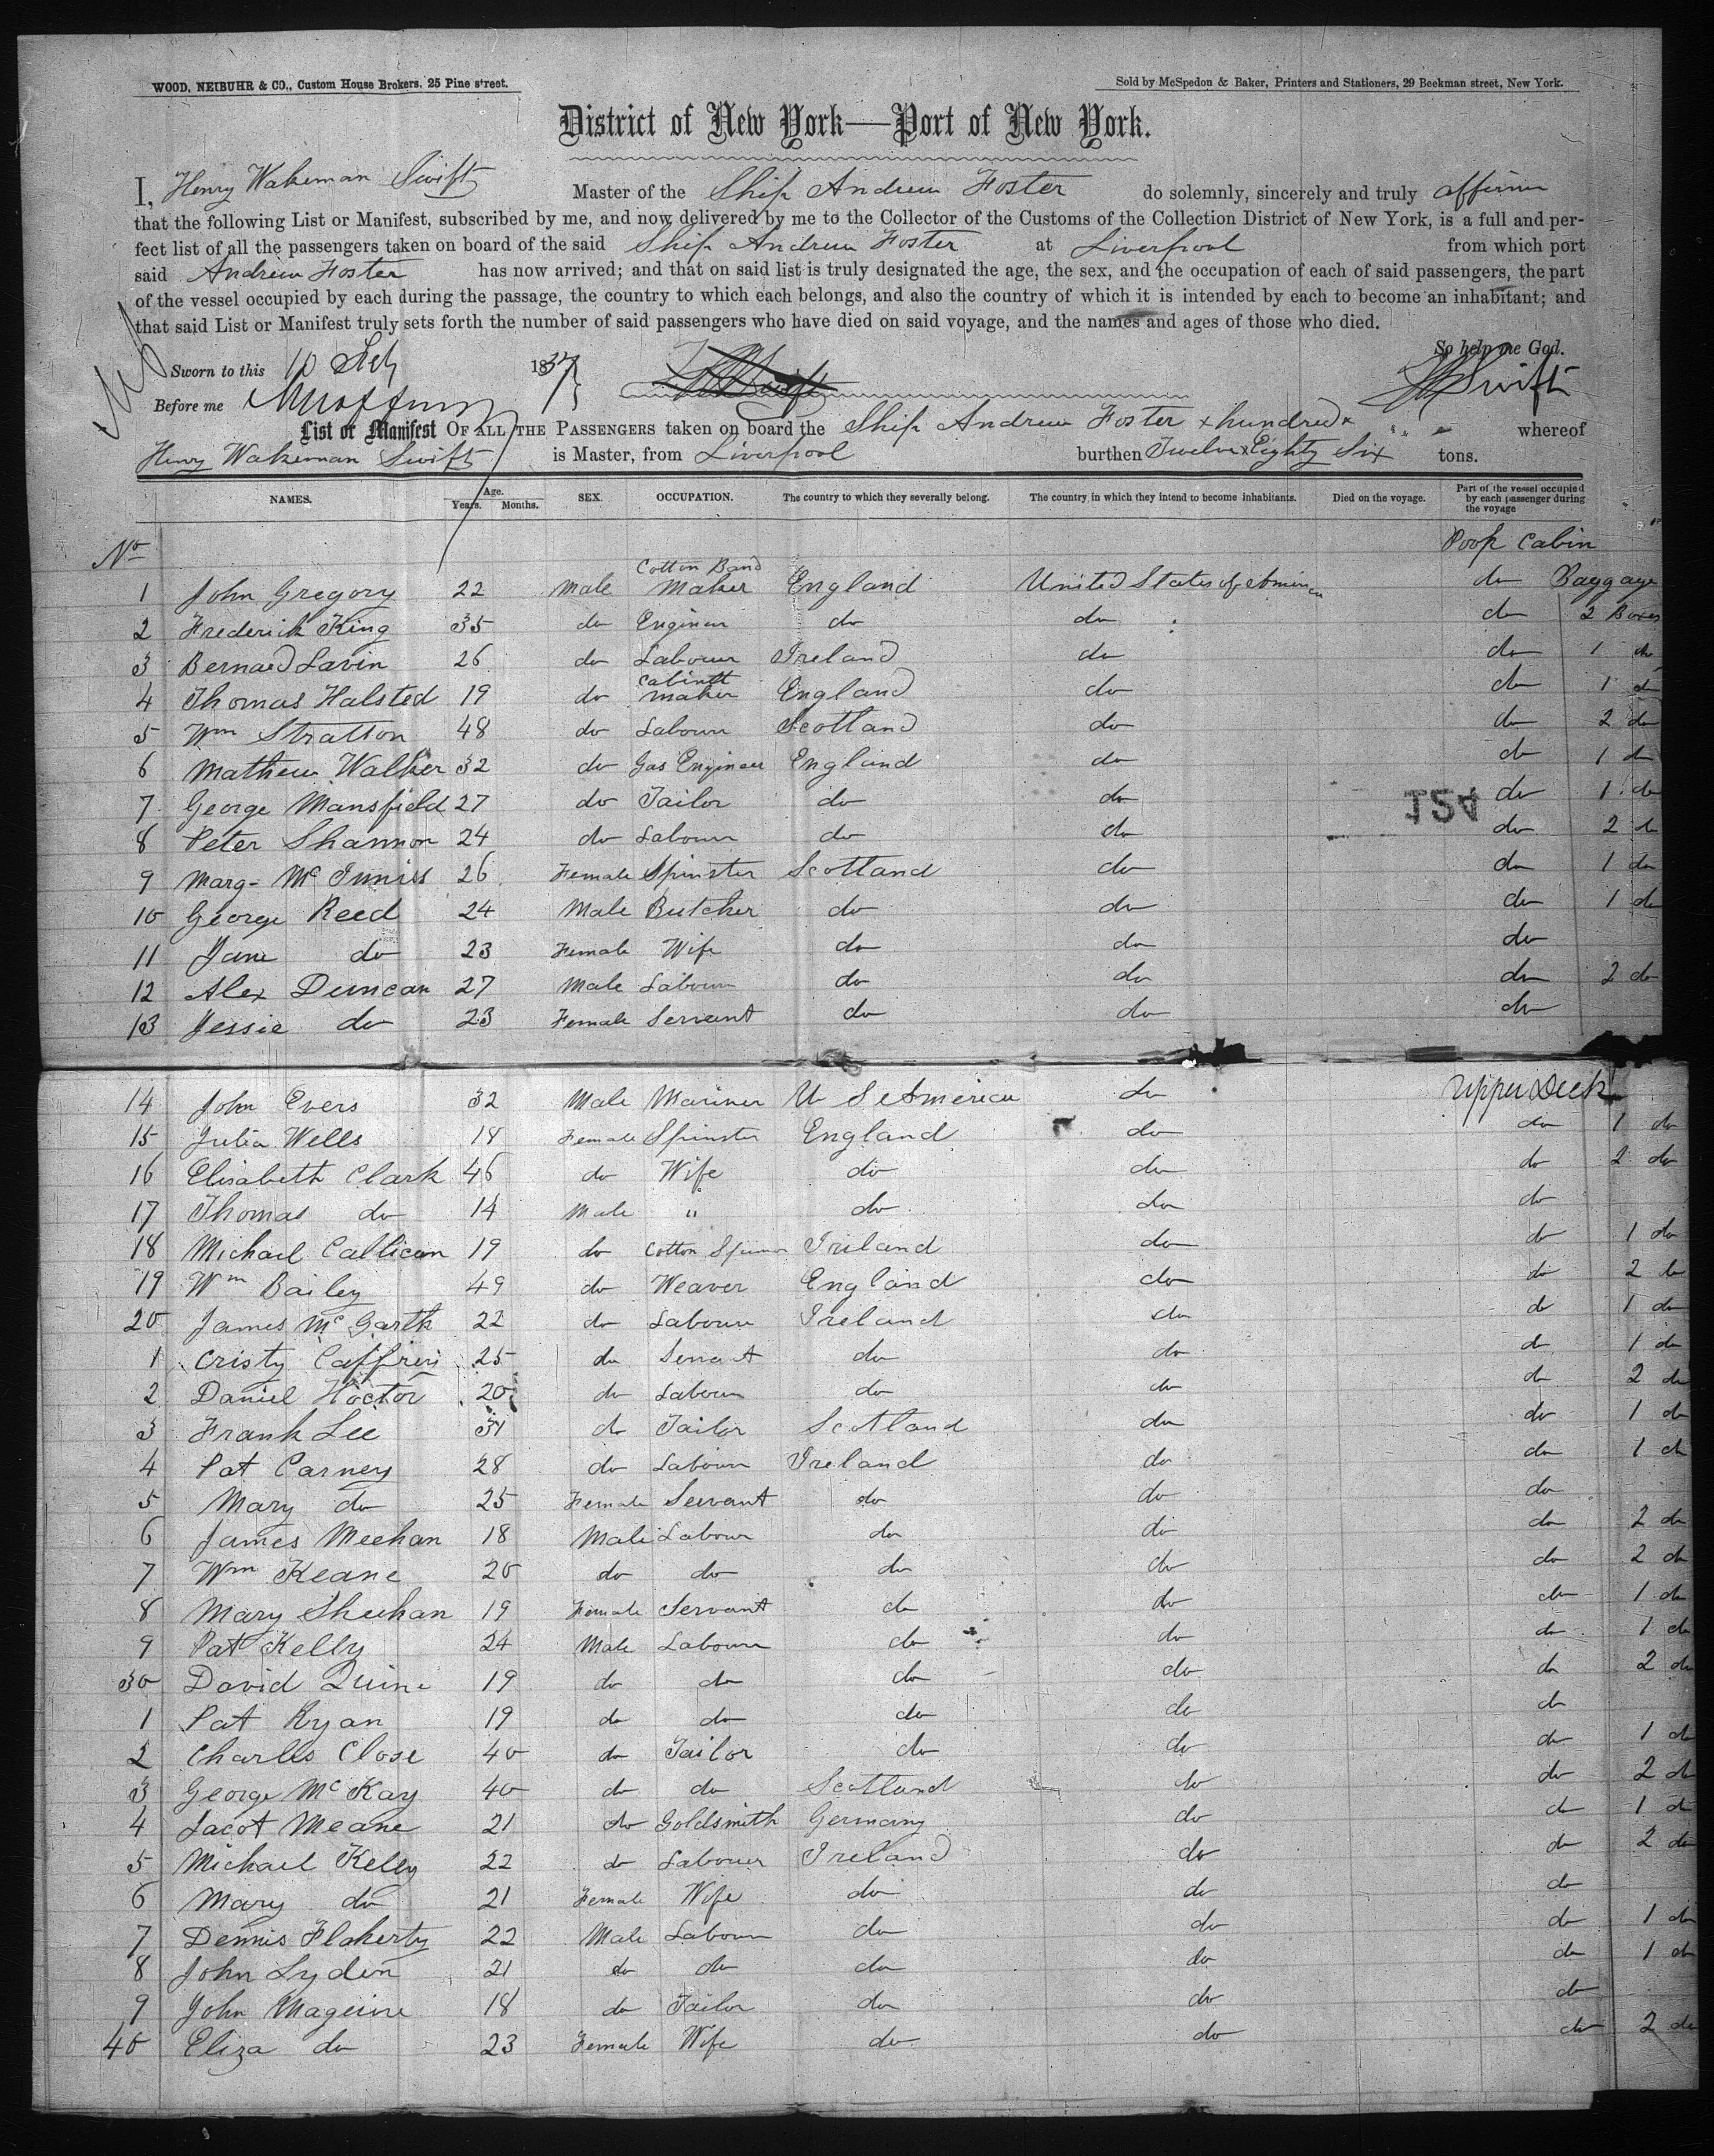 WOOD, NEIBUHR & CO., Custom House Brokers, 25 Pine street.
Sold by McSpedon & Baker, Printers and Stationers, 29 Beekman street, New York.
District of New York—Port of New York.
I, Henry Wakeman Swift Master of the Ship Andrew Foster do solemnly, sincerely and truly affirm
that the following List or Manifest, subscribed by me, and now delivered by me to the Collector of the Customs of the Collection District of New York, is a full and per-
fect list of all the passengers taken on board of the said Ship Andrew Foster at Liverpool from which port
said Andrew Foster has now arrived; and that on said list is truly designated the age, the sex, and the occupation of each of said passengers, the part
of the vessel occupied by each during the passage, the country to which each belongs, and also the country of which it is intended by each to become an inhabitant; and
that said List or Manifest truly sets forth the number of said passengers who have died on said voyage, and the names and ages of those who died.
So help me God.
Sworn to this 10 Feb 1857 HWSwift
Before me
List or Manifest OF ALL THE PASSENGERS taken on board the Ship Andrew Foster x hundred x whereof
Henry Wakeman Swift is Master, from Liverpool burthen Twelve x Eighty Six tons.
NAMES. Age. Years. Months. SEX. OCCUPATION. The country to which they severally belong. The country in which they intend to become inhabitants. Died on the voyage. Part of the vessel occupied by each passenger during the voyage
No Poop Cabin
1 John Gregory 22 Male Cotton Band Maker England United States of America do Baggage
2 Frederick King 35 do Engineer do do do 2 Boxes
3 Bernard Lavin 26 do Labour Ireland do do 1 do
4 Thomas Halsted 19 do Cabinett maker England do do 1 do
5 Wm Stratton 48 do Labour Scotland do do 2 do
6 Mathew Walker 32 do Gas Engineer England do do 1 do
7 George Mansfield 27 do Tailor do do do 1 do
154
8 Peter Shannon 24 do Labour do do do 2 do
9 Marg- Mc Inniss 26 Female Spinster Scotland do do 1 do
10 George Reed 24 Male Butcher do do do 1 do
11 Jane do 23 Female Wife do do do
12 Alex Duncan 27 Male Labour do do do 2 do
13 Jessie do 23 Female Servant do do do
14 John Evers 32 Male Mariner U S America do Upper Deck
15 Julia Wells 18 Female Spinster England do do 1 do
16 Elisabeth Clark 46 do Wife do do do 2 do
17 Thomas do 14 Male " do do do
18 Michael 19 do Cotton Spinner Ireland do do 1 do
19 Wm Bailey 49 do Weaver England do do 2 do
20 James Mc Garth 22 do Labour Ireland do do 1 do
1 Cristy 25 do Servant do do do 1 do
2 Daniel Hoctor 20 do Labour do do do 2 do
3 Frank Lee do Tailor Scotland do do 1 do
4 Pat Carney 28 do Labour Ireland do do 1 do
5 Mary do 25 Female Servant do do do
6 James Meehan 18 Male Labour do do do 2 do
7 Wm Keane 20 do do do do do 2 do
8 Mary Sheehan 19 Female Servant do do do 1 do
9 Pat Kelly 24 Male Labour do do do 1 do
30 David Quine 19 do do do do do 2 do
1 Pat Ryan 19 do do do do do
2 Charles Close 40 do Tailor do do do 1 do
3 George Mc Kay 40 do do Scotland do do 2 do
4 Jacot Meane 21 do Goldsmith Germany do do 1 do
5 Michael Kelly 22 do Labour Ireland do do 2 do
6 Mary do 21 Female Wife do do do
7 Dennis Flaherty 22 Male Labour do do do 1 do
8 John Lyden 21 do do do do do 1 do
9 John Maguire 18 do Tailor do do do
40 Eliza do 23 Female Wife do do do 2 do